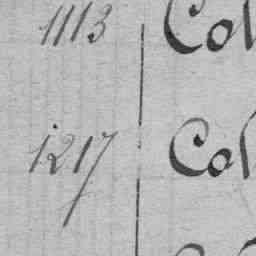 1113 Col
1217 Col